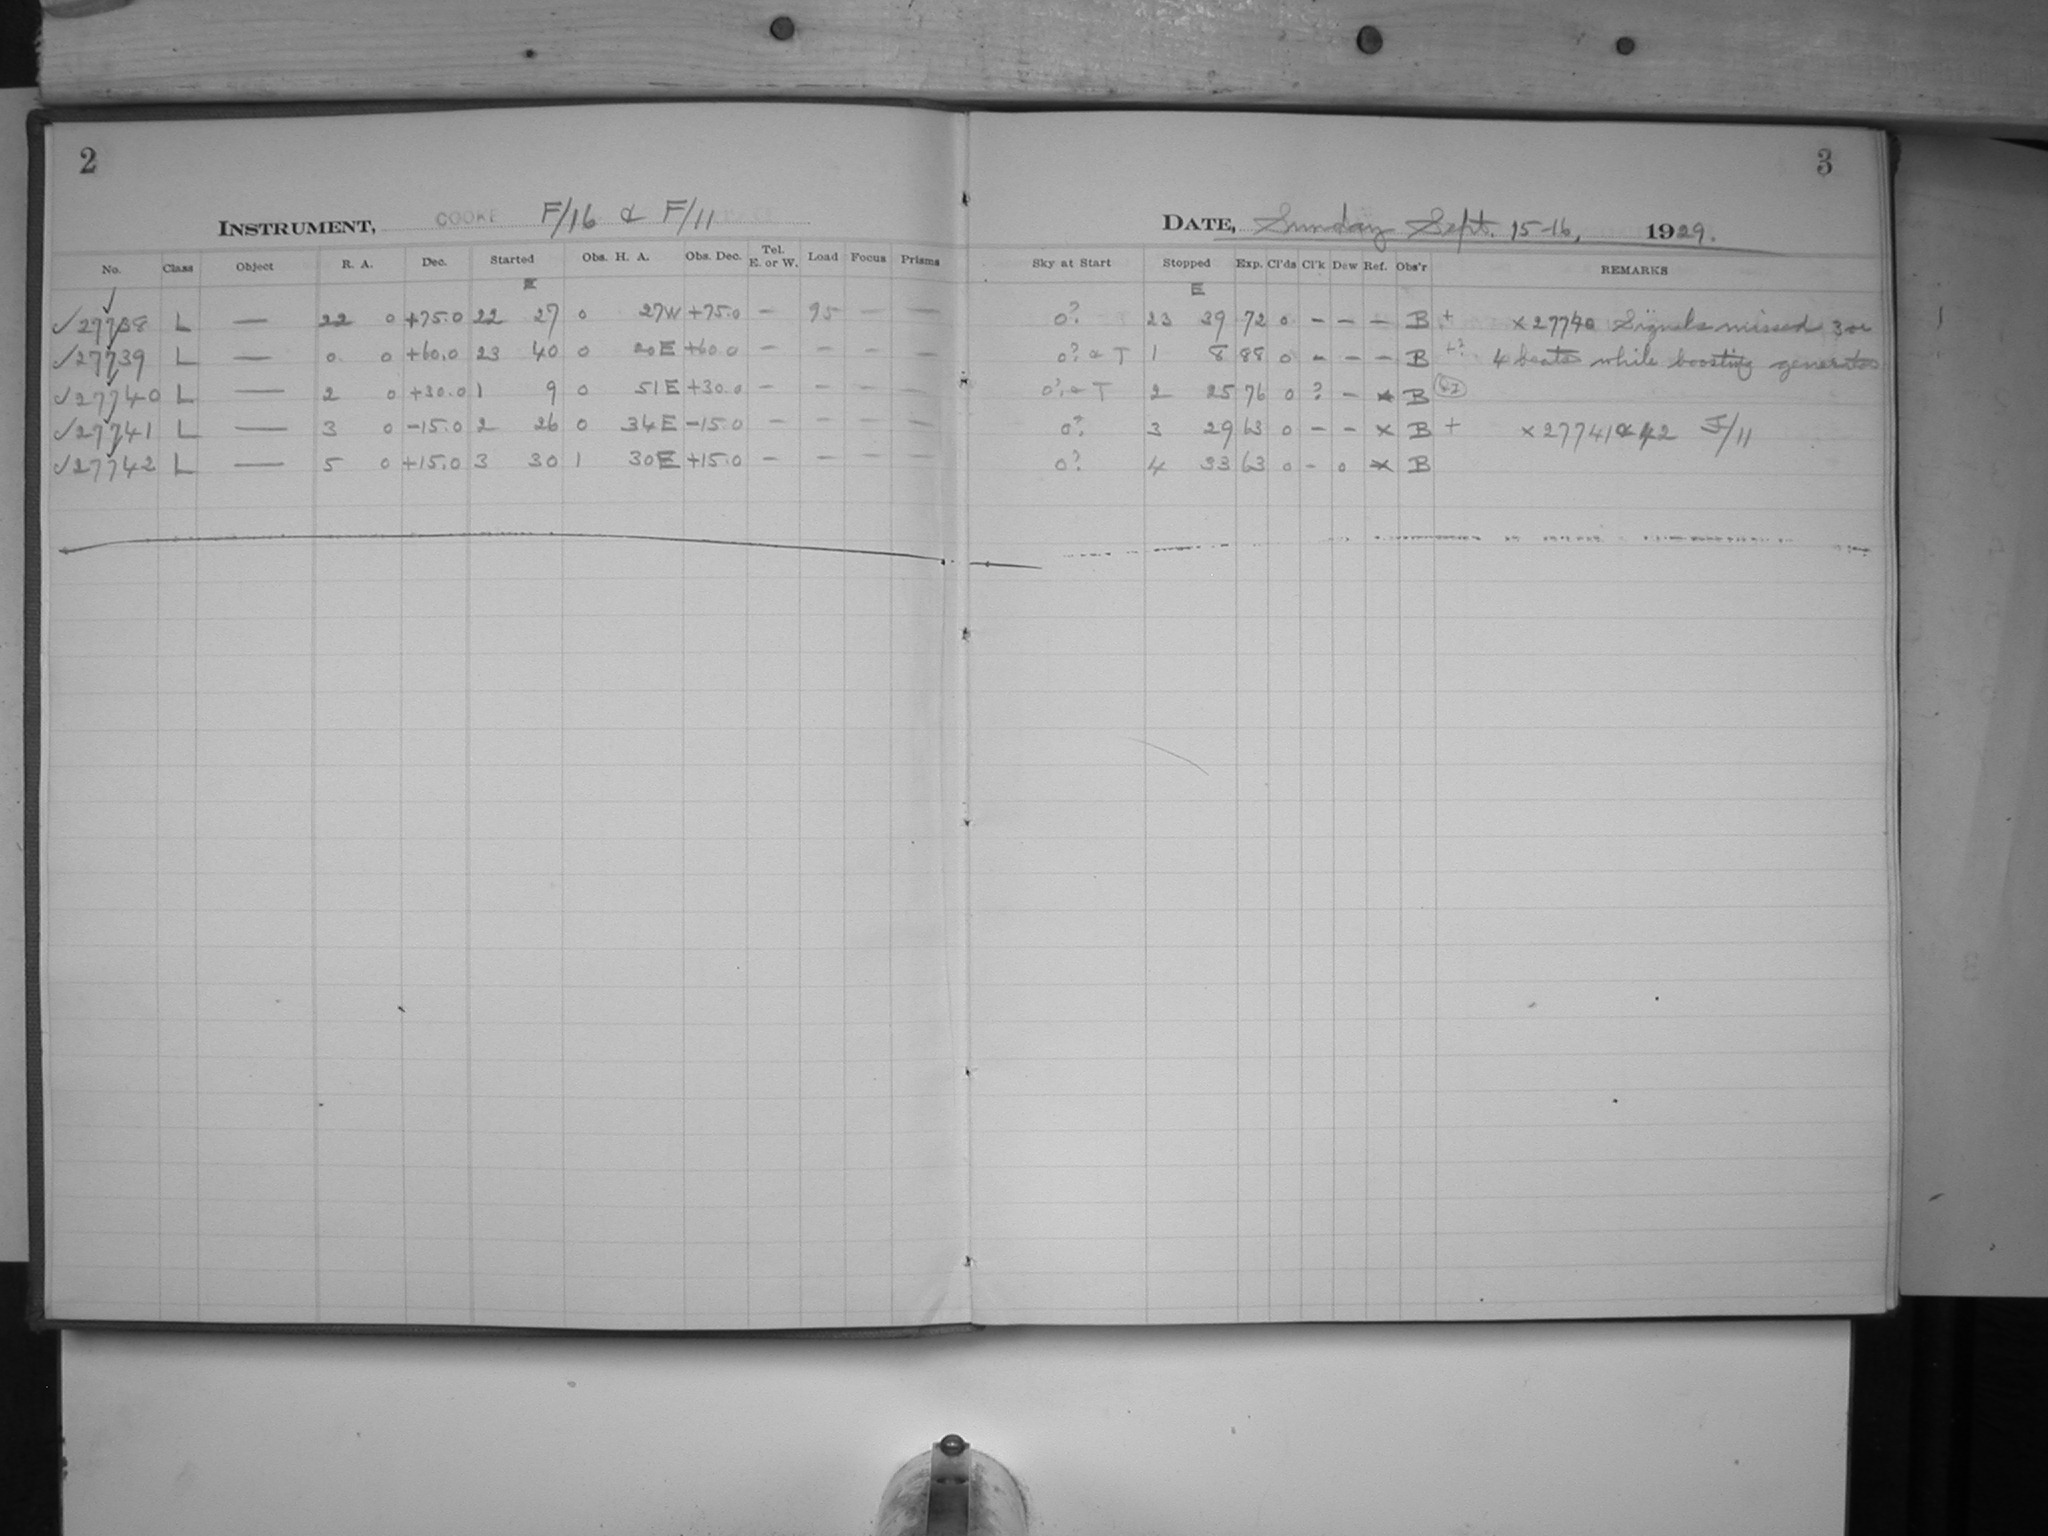 2
INSTRUMENT, COOKE F/16 & F/11
No. Class Object R. A. Dec. Started Obs. H. A. Obs. Dec. Tel. E. or W. Load Focus Prisms
E
✓27738 L — 22 0 +75.0 22 27 0 27W +75.0 — 95 — —
✓27739 L — 0 0 +60.0 23 40 0 20E +60.0 — — — —
✓27740 L — 2 0 +30.0 1 9 0 51E +30.0 — — — —
✓27741 L — 3 0 -15.0 2 26 0 34E -15.0 — — — —
✓27742 L — 5 0 +15.0 3 30 1 30E +15.0 — — — —
3
DATE, Sunday Sept. 15-16, 1929.
Sky at Start Stopped Exp. Cl'ds Cl'k Dew Ref. Obs'r REMARKS
E
0? 23 39 72 0 - - - B + x 27740 Signals missed 3 or
0? & T 1 8 88 0 - - - B +? 4 beats while boosting generator
0? & T 2 25 76 0 ? - x B
0? 3 29 63 0 - - x B + x 27741 & 42 F/11
0? 4 33 63 0 - 0 x B